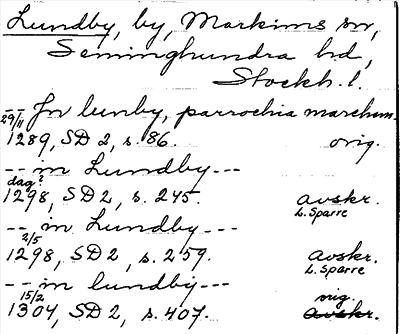 Lundby, by, Markims sn,
Seminghundra hd,
Stockh. l.
-- Jn lunby, parrochia marchem.
29/11
1289, SD 2, s. 86. orig.
-- in Lundby ---
dag?
1298, SD 2, s. 245. avskr.
L. Sparre
-- in Lundby ---
2/5
1298, SD 2, s. 259. avskr.
L. Sparre
-- in lundby ---
15/2 orig.
1304, SD 2, s. 407. avskr.